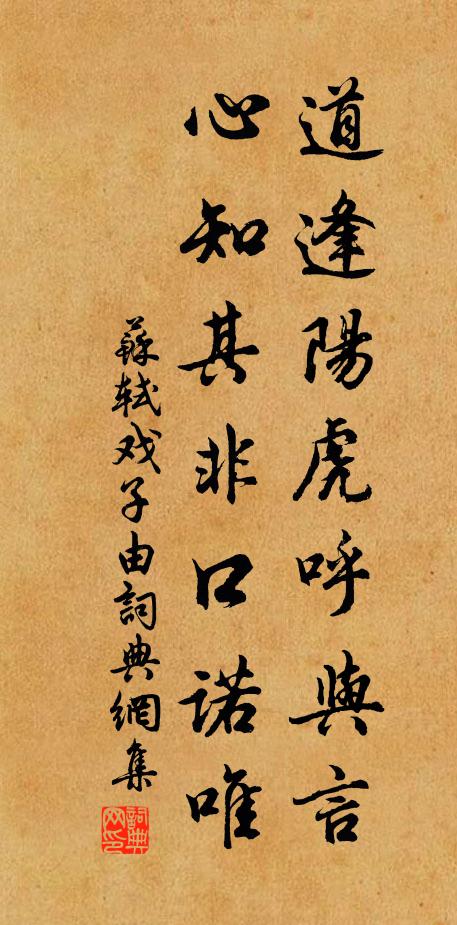 道逢陽虎呼與言
心知其非口諾唯
蘇軾戏子由詞典網集
詞典网印